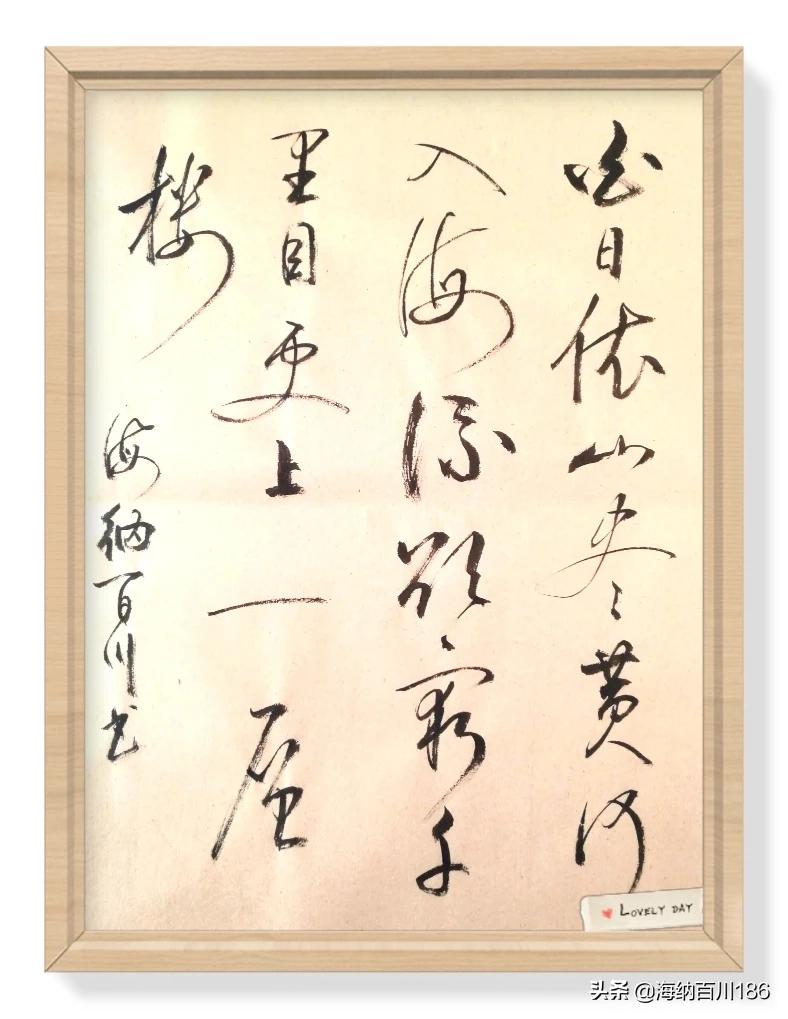 白日依山尽黄河
入海流欲穷千
里目更上一层
楼
海纳百川书
LOVELY DAY
头条 @海纳百川186